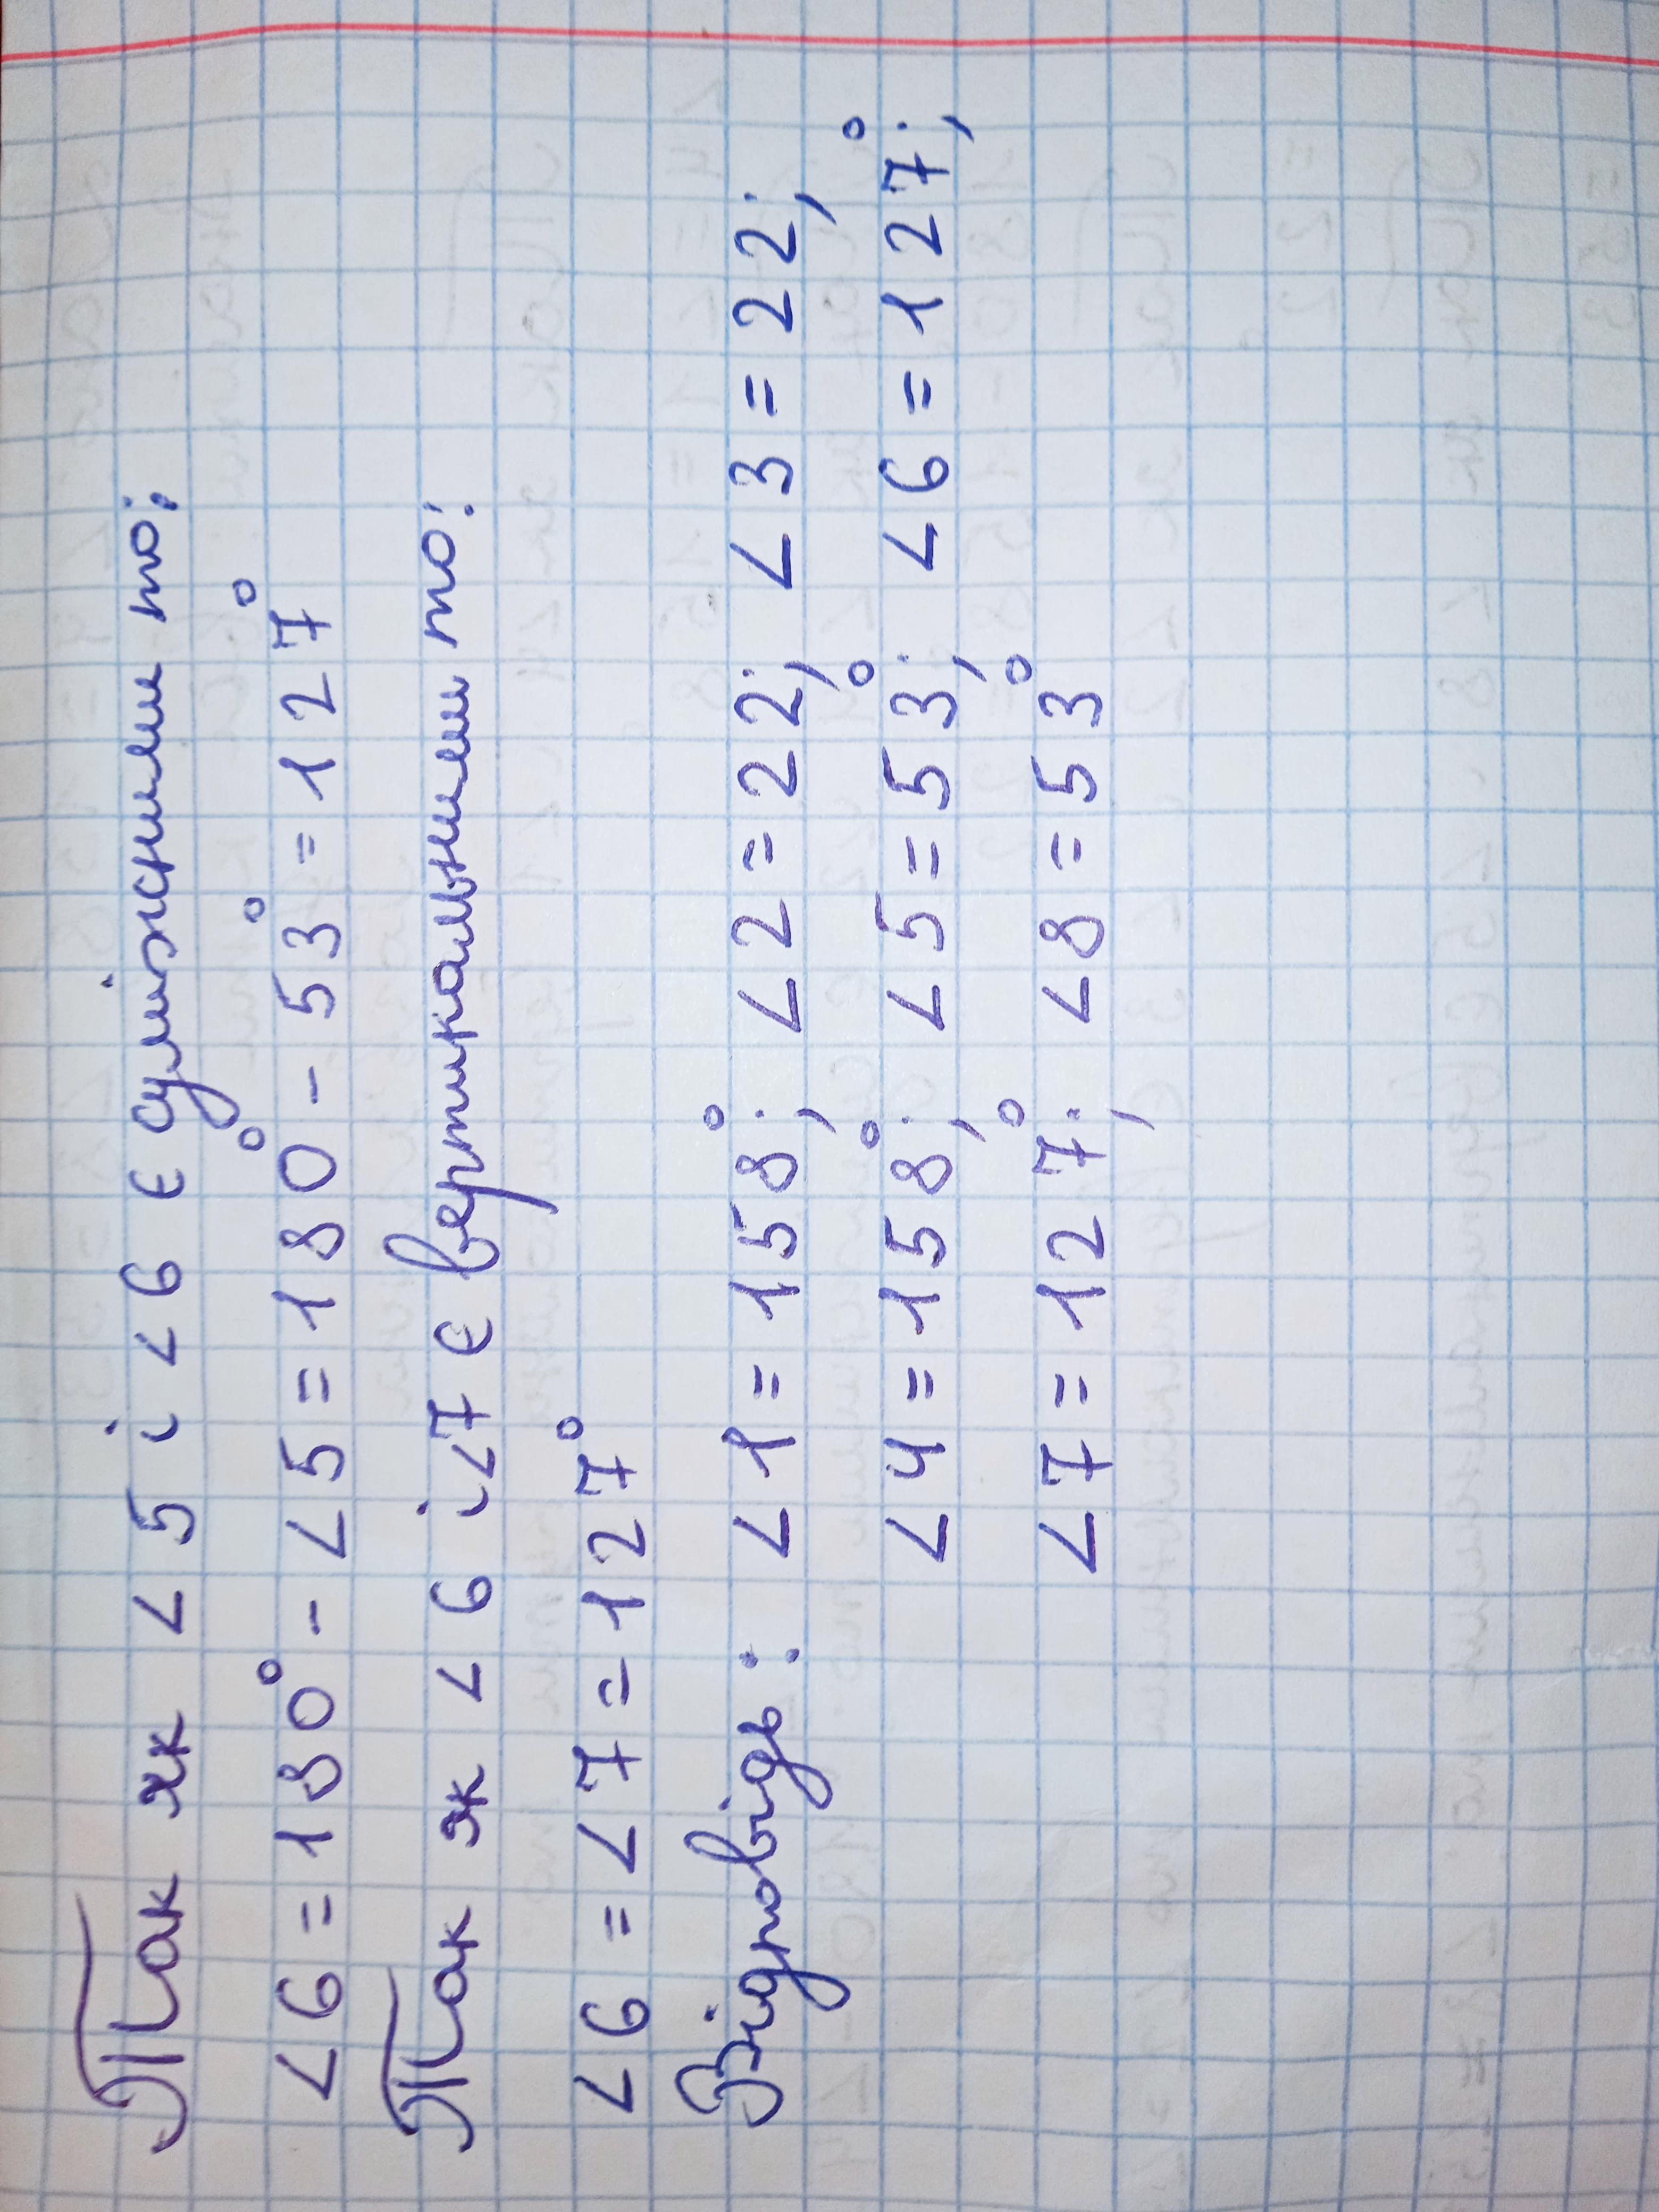 Так як ∠5 і ∠6 є суміжними то;
∠6 = 180° - ∠5 = 180° - 53° = 127°
Так як ∠6 і ∠7 є вертикальними то:
∠6 = ∠7 = 127°
Відповідь: ∠1 = 158°; ∠2 = 22; ∠3 = 22;
∠4 = 158°; ∠5 = 53°; ∠6 = 127°;
∠7 = 127°; ∠8 = 53°